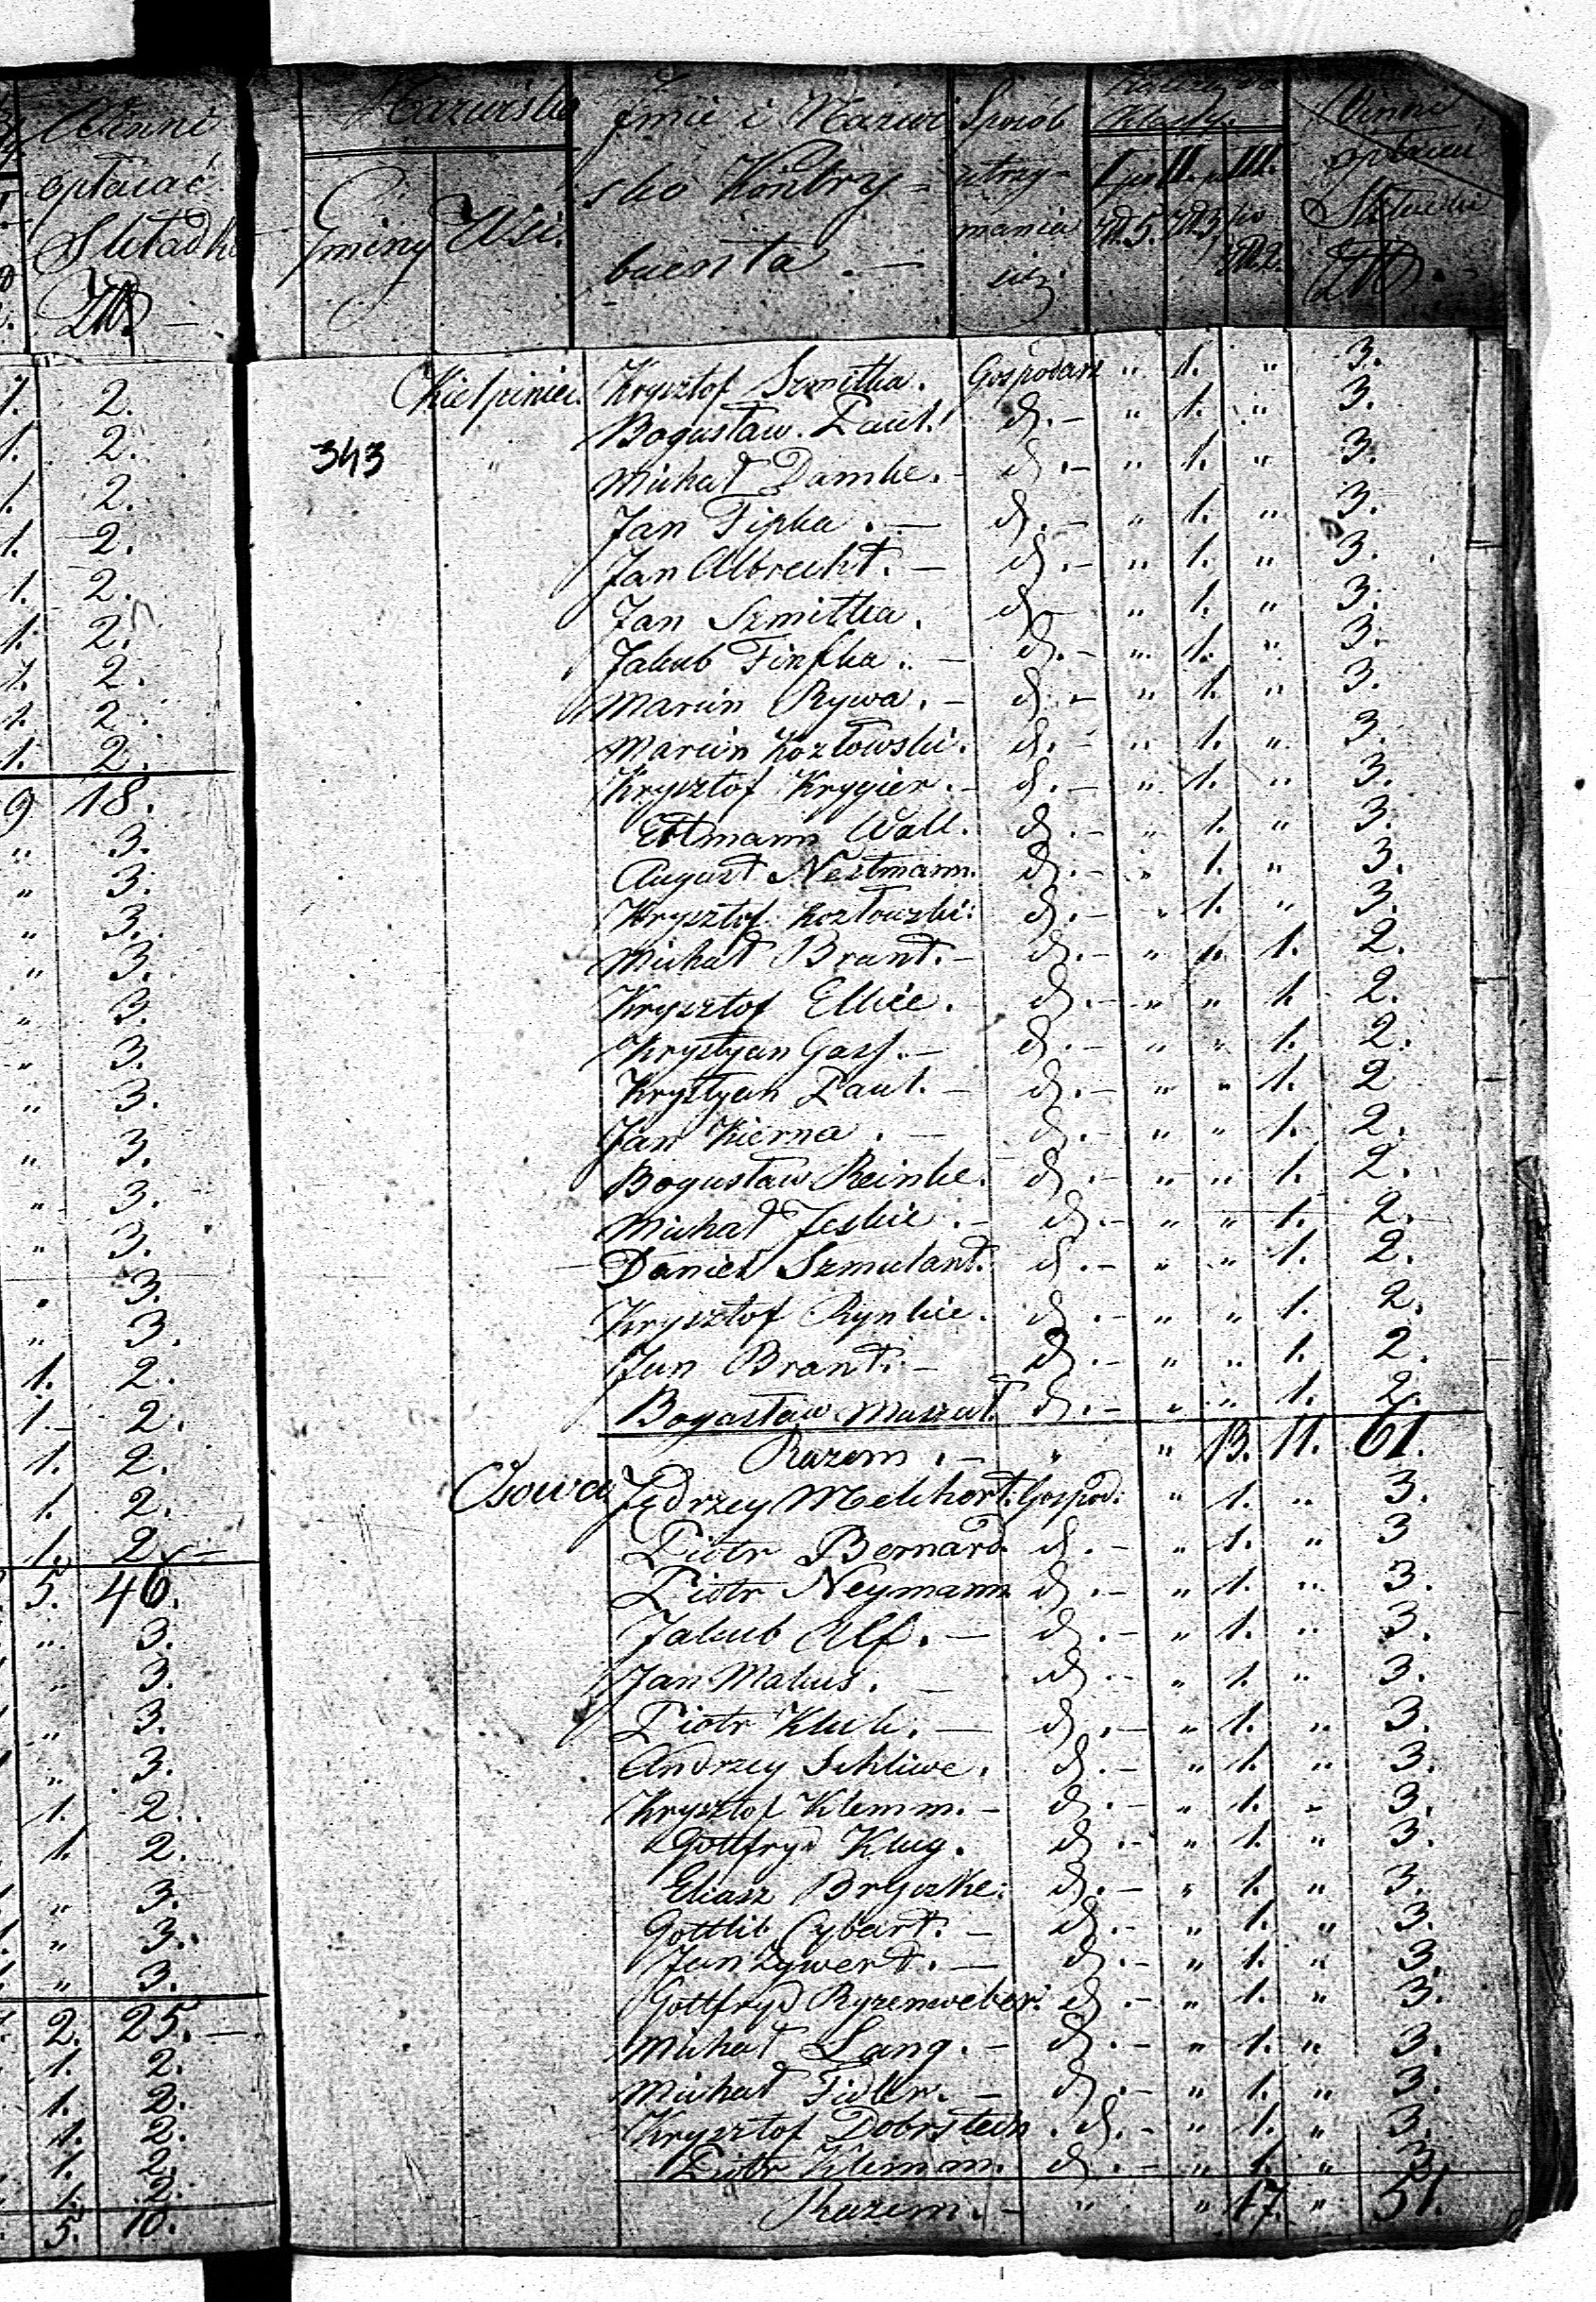 Winni
opłacać
Składkę
Złł.
2.
1. 2.
1. 2.
1. 2.
1. 2.
1. 2.
2.
1. 2.
1. 2.
9 18.
" 3.
" 3.
" 3.
" 3.
" 3.
" 3.
" 3.
" 3.
" 3.
" 3.
" 3.
" 3.
1. 2.
1. 2.
1. 2.
1. 2.
1. 2.
5. 46.
" 3.
" 3.
" 3.
" 3.
1. 2.
1. 2.
" 3.
" 3.
" 3.
2. 25.
1. 2.
1. 2.
1. 2.
1. 2.
1. 2.
5. 10.
Nazwisko Imie i Nazwi Sposób Klassy Winni
Gminy Wsi. sko Kontry- utrzy- I II. III. opłacać
buenta. mania Zł.5. Zł.3 Zł.2. Składkę
się Złł.
Kiełpiniec. Krysztof Szmitka. Gospodarz " 1. " 3.
Bogusław Paul. d. " 1. " 3.
343 " Michał Damke. d. " 1. " 3.
Jan Fipka. d. " 1. " 3.
Jan Albrecht. d. " 1. " 3.
Jan Szmitka. d. " 1. " 3.
Jakub Finfka. d. " 1. " 3.
Marcin Rywa. d. " 1. " 3.
Marcin Kozłowski. d. " 1. " 3.
Krysztof Krygier. d. " 1. " 3.
Wall. d. " 1. " 3.
August Nestmann. d. " 1. " 3.
Krysztof Kozłowski. d. " 1. " 3.
Michał Brant. d. " " 1. 2.
Krysztof Elkie. d. " " 1. 2.
Krystyan Gass. d. " " 1. 2.
Krystyan Paul. d. " " 1. 2
Jan Kierna. d. " " 1. 2.
Bogusław Reinke. d. " " 1. 2.
Michał Jeskie. d. " " 1. 2.
Daniel Szmulant. d. " " 1. 2.
Krysztof Rynkie. d. " " 1. 2.
Jan Brant. d. " " 1. 2.
Bogusław d. " " 1. 2.
Razem. " " 13. 11. 61.
Osowa Jędrzey Melchert. Gospod. " 1. " 3.
Piotr Bernard. d. " 1. " 3
Piotr Neymann d. " 1. " 3.
Jakub Ulf. d. " 1. " 3.
Jan Makus. d. " 1. " 3.
Piotr Kluk. d. " 1. " 3.
Andrzey Schliwe. d. " 1. " 3.
Krysztof Klemm. d. " 1. " 3.
Gottfryd Klug. d. " 1. " 3.
Eliasz Bryszke. d. " 1. " 3.
Gottlib Cybart. d. " 1. " 3.
Jan Zywert. d. " 1. " 3.
Gottfryd Ryzenweber. d. " 1. " 3.
Michał Lang. d. " 1. " 3.
Michał Fidler. d. " 1. " 3.
Krysztof Dobrstein. d. " 1. " 3.
Piotr Klemm. d. " 1. " 3.
Razem. " " 17. " 51.